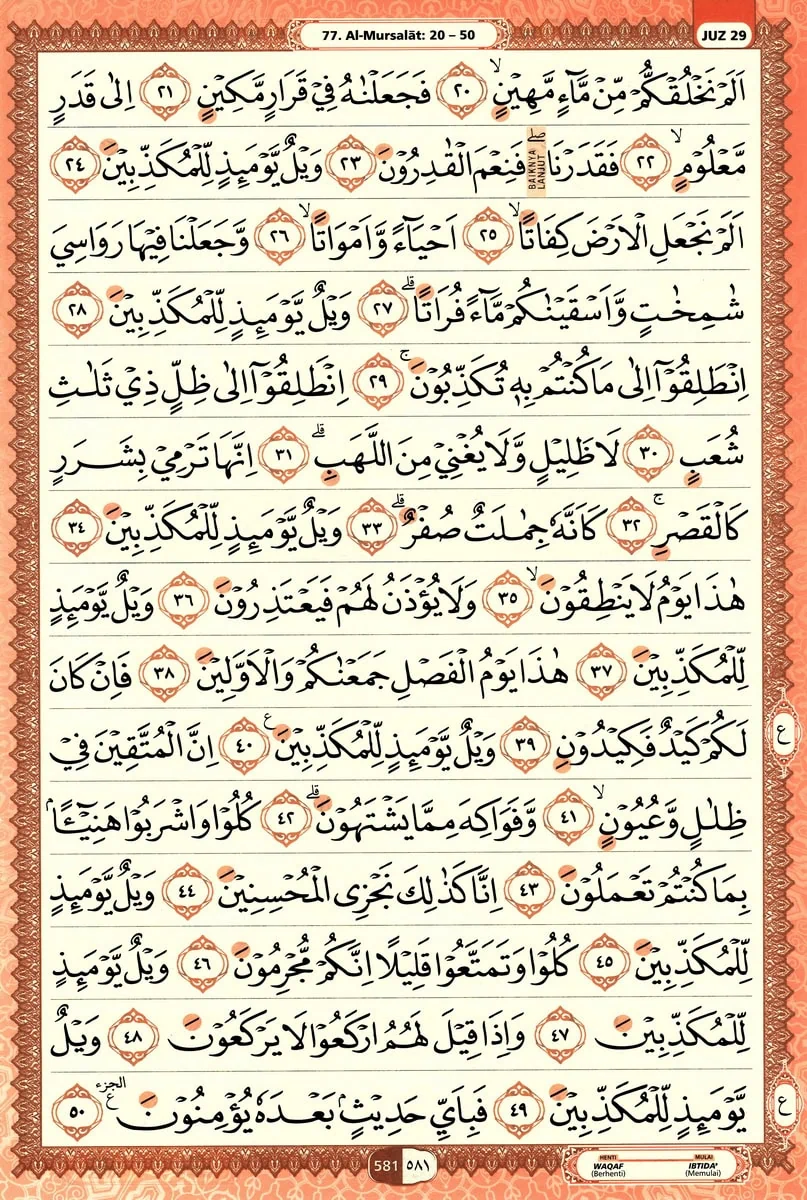 77. Al-Mursalāt: 20 – 50
JUZ 29
اَلَمْ نَخْلُقْكُّمْ مِّنْ مَّاۤءٍ مَّهِيْنٍۙ ٢٠ فَجَعَلْنٰهُ فِيْ قَرَارٍ مَّكِيْنٍ ٢١ اِلٰى قَدَرٍ
مَّعْلُوْمٍۙ ٢٢ فَقَدَرْنَاۖ فَنِعْمَ الْقٰدِرُوْنَ ٢٣ وَيْلٌ يَّوْمَىِٕذٍ لِّلْمُكَذِّبِيْنَ ٢٤
BAIKNYA LANJUT
اَلَمْ نَجْعَلِ الْاَرْضَ كِفَاتًاۙ ٢٥ اَحْيَاۤءً وَّاَمْوَاتًاۙ ٢٦ وَّجَعَلْنَا فِيْهَا رَوَاسِيَ
شٰمِخٰتٍ وَّاَسْقَيْنٰكُمْ مَّاۤءً فُرَاتًاۗ ٢٧ وَيْلٌ يَّوْمَىِٕذٍ لِّلْمُكَذِّبِيْنَ ٢٨
اِنْطَلِقُوْٓا اِلٰى مَا كُنْتُمْ بِهٖ تُكَذِّبُوْنَۚ ٢٩ اِنْطَلِقُوْٓا اِلٰى ظِلٍّ ذِيْ ثَلٰثِ
شُعَبٍ ٣٠ لَا ظَلِيْلٍ وَّلَا يُغْنِيْ مِنَ اللَّهَبِۗ ٣١ اِنَّهَا تَرْمِيْ بِشَرَرٍ
كَالْقَصْرِۚ ٣٢ كَاَنَّهٗ جِمٰلَتٌ صُفْرٌۗ ٣٣ وَيْلٌ يَّوْمَىِٕذٍ لِّلْمُكَذِّبِيْنَ ٣٤
هٰذَا يَوْمُ لَا يَنْطِقُوْنَۙ ٣٥ وَلَا يُؤْذَنُ لَهُمْ فَيَعْتَذِرُوْنَ ٣٦ وَيْلٌ يَّوْمَىِٕذٍ
لِّلْمُكَذِّبِيْنَ ٣٧ هٰذَا يَوْمُ الْفَصْلِ جَمَعْنٰكُمْ وَالْاَوَّلِيْنَ ٣٨ فَاِنْ كَانَ
لَكُمْ كَيْدٌ فَكِيْدُوْنِ ٣٩ وَيْلٌ يَّوْمَىِٕذٍ لِّلْمُكَذِّبِيْنَ ࣖ ٤٠ اِنَّ الْمُتَّقِيْنَ فِيْ
ع
ظِلٰلٍ وَّعُيُوْنٍۙ ٤١ وَّفَوَاكِهَ مِمَّا يَشْتَهُوْنَۗ ٤٢ كُلُوْا وَاشْرَبُوْا هَنِيْۤـًٔا ۢ
بِمَا كُنْتُمْ تَعْمَلُوْنَ ٤٣ اِنَّا كَذٰلِكَ نَجْزِى الْمُحْسِنِيْنَ ٤٤ وَيْلٌ يَّوْمَىِٕذٍ
لِّلْمُكَذِّبِيْنَ ٤٥ كُلُوْا وَتَمَتَّعُوْا قَلِيْلًا اِنَّكُمْ مُّجْرِمُوْنَ ٤٦ وَيْلٌ يَّوْمَىِٕذٍ
لِّلْمُكَذِّبِيْنَ ٤٧ وَاِذَا قِيْلَ لَهُمُ ارْكَعُوْا لَا يَرْكَعُوْنَ ٤٨ وَيْلٌ
يَّوْمَىِٕذٍ لِّلْمُكَذِّبِيْنَ ٤٩ فَبِاَيِّ حَدِيْثٍۢ بَعْدَهٗ يُؤْمِنُوْنَ ࣖ الجزء ٥٠
ع
581 ٥٨١
HENTI WAQAF (Berhenti)
MULAI IBTIDA' (Memulai)